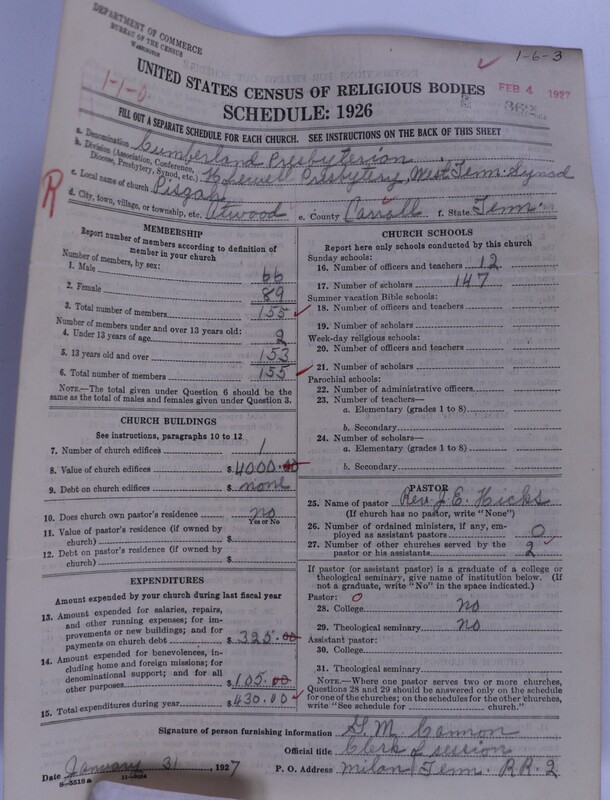 DEPARTMENT OF COMMERCE
BUREAU OF THE CENSUS
WASHINGTON
1-6-3
1-1-0
UNITED STATES CENSUS OF RELIGIOUS BODIES
FEB 4 1927
SCHEDULE: 1926
FILL OUT A SEPARATE SCHEDULE FOR EACH CHURCH. SEE INSTRUCTIONS ON THE BACK OF THIS SHEET
a. Denomination Cumberland Presbyterian
b. Division (Association, Conference, Diocese, Presbytery, Synod, etc.) Hopewell Presbytery, West Tenn. Synod
c. Local name of church Pisgah
R
d. City, town, village, or township, etc. Atwood e. County Carroll f. State Tenn.
MEMBERSHIP
Report number of members according to definition of
member in your church
Number of members, by sex:
1. Male 66
2. Female 89
3. Total number of members 155
Number of members under and over 13 years old:
4. Under 13 years of age 2
5. 13 years old and over 153
6. Total number of members 155
NOTE.—The total given under Question 6 should be the
same as the total of males and females given under Question 3.
CHURCH BUILDINGS
See instructions, paragraphs 10 to 12
7. Number of church edifices 1
8. Value of church edifices $4000.00
9. Debt on church edifices $none
10. Does church own pastor's residence no
Yes or No
11. Value of pastor's residence (if owned by
church) $
12. Debt on pastor's residence (if owned by
church) $
EXPENDITURES
Amount expended by your church during last fiscal year
13. Amount expended for salaries, repairs,
and other running expenses; for im-
provements or new buildings; and for
payments on church debt $325.00
14. Amount expended for benevolences, in-
cluding home and foreign missions; for
denominational support; and for all
other purposes $105.00
15. Total expenditures during year $430.00
CHURCH SCHOOLS
Report here only schools conducted by this church
Sunday schools:
16. Number of officers and teachers 12
17. Number of scholars 147
Summer vacation Bible schools:
18. Number of officers and teachers
19. Number of scholars
Week-day religious schools:
20. Number of officers and teachers
21. Number of scholars
Parochial schools:
22. Number of administrative officers
23. Number of teachers—
a. Elementary (grades 1 to 8)
b. Secondary
24. Number of scholars—
a. Elementary (grades 1 to 8)
b. Secondary
PASTOR
25. Name of pastor Rev. J. E. Hicks
(If church has no pastor, write "None")
26. Number of ordained ministers, if any, em-
ployed as assistant pastors 0
27. Number of other churches served by the
pastor or his assistants 2
If pastor (or assistant pastor) is a graduate of a college or
theological seminary, give name of institution below. (If
not a graduate, write "No" in the space indicated.)
Pastor: 0
28. College no
29. Theological seminary no
Assistant pastor:
30. College
31. Theological seminary
NOTE.—Where one pastor serves two or more churches,
Questions 28 and 29 should be answered only on the schedule
for one of the churches; on the schedules for the other churches,
write "See schedule for church."
Signature of person furnishing information G. M. Cannon
Official title Clerk of session
Date January 31, 1927 P. O. Address Milan Tenn. RR. 2